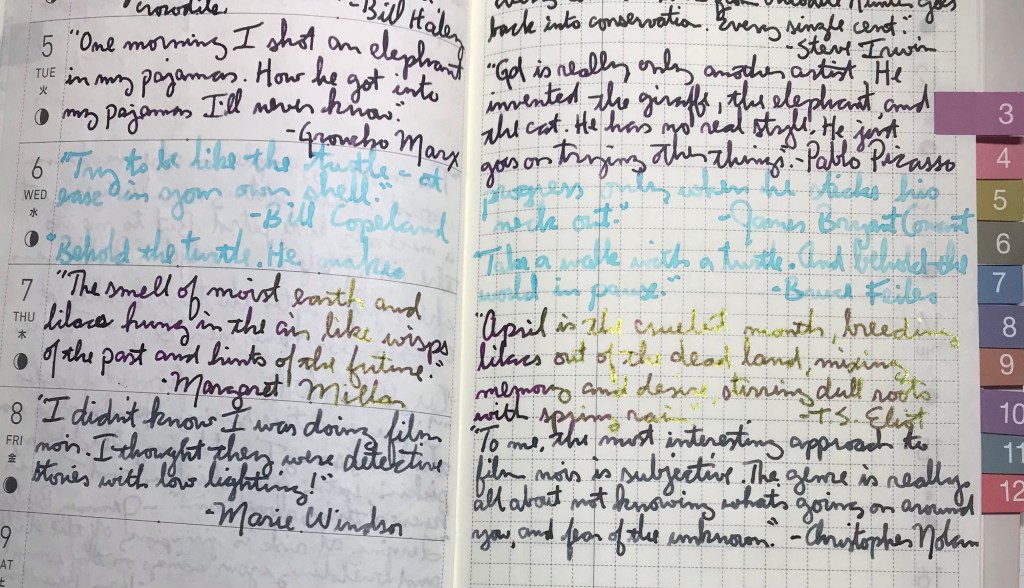 crocodile.
-Bill Haley
5
TUE
火
"One morning I shot an elephant
in my pajamas. How he got into
my pajamas I'll never know."
-Groucho Marx
6
WED
水
"Try to be like the turtle - at
ease in your own shell."
-Bill Copeland
"Behold the turtle. He makes
7
THU
木
"The smell of moist earth and
lilacs hung in the air like wisps
of the past and hints of the future."
-Margaret Millar
8
FRI
金
"I didn't know I was doing film
noir. I thought they were detective
stories with low lighting!"
-Marie Windsor
9
SAT
土
goes
back into conservation. Every single cent."
-Steve Irwin
"God is really only another artist. He
invented the giraffe, the elephant and
the cat. He has no real style. He just
goes on trying other things." -Pablo Picasso
progress only when he sticks his
neck out."
-James Bryant Conant
Take a walk with a turtle. And behold the
world in pause."
-Bruce Feiler
"April is the cruelest month, breeding
lilacs out of the dead land, mixing
memory and desire, stirring dull roots
with spring rain"
-T.S. Eliot
"To me, the most interesting approach to
film noir is subjective. The genre is really
all about not knowing what's going on around
you, and fear of the unknown." -Christopher Nolan
3
4
5
6
7
8
9
10
11
12